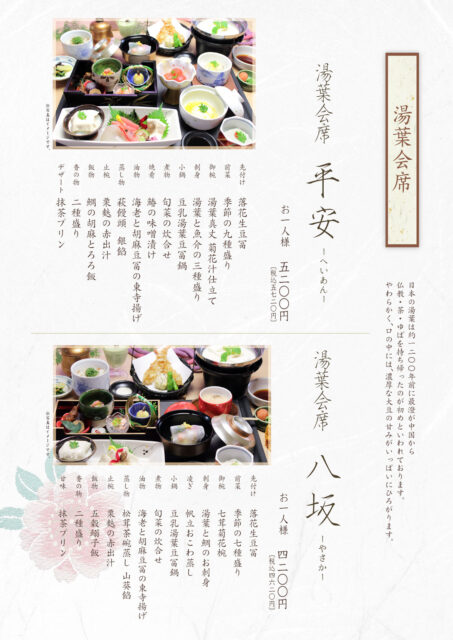 湯葉会席
日本の湯葉は約一二〇〇年前に最澄が中国から
仏教・茶・ゆばを持ち帰ったのが初めといわれております。
やわらかく、口の中には、濃厚な大豆の甘みがいっぱいにひろがります。
湯葉会席 平安 ーへいあんー
お一人様 五二〇〇円
[税込五七二〇円]
先付け 落花生豆冨
前菜 季節の九種盛り
御椀 湯葉真丈 菊花汁仕立て
刺身 湯葉と魚介の三種盛り
小鍋 豆乳湯葉豆冨鍋
煮物 旬菜の炊合せ
焼肴 鰆の味噌漬け
油物 海老と胡麻豆冨の東寺揚げ
蒸し物 萩饅頭 銀餡
止椀 粟麩の赤出汁
飯物 鯛の胡麻とろろ飯
香の物 二種盛り
デザート 抹茶プリン
※写真はイメージです。
湯葉会席 八坂 ーやさかー
お一人様 四二〇〇円
[税込四六二〇円]
先付け 落花生豆冨
前菜 季節の七種盛り
御椀 七茸菊花椀
刺身 湯葉と鯛のお刺身
凌ぎ 帆立おこわ蒸し
小鍋 豆乳湯葉豆冨鍋
煮物 旬菜の炊合せ
油物 海老と胡麻豆冨の東寺揚げ
蒸し物 松茸茶碗蒸し 山葵餡
止椀 粟麩の赤出汁
飯物 五穀鯛子飯
香の物 二種盛り
甘味 抹茶プリン
※写真はイメージです。